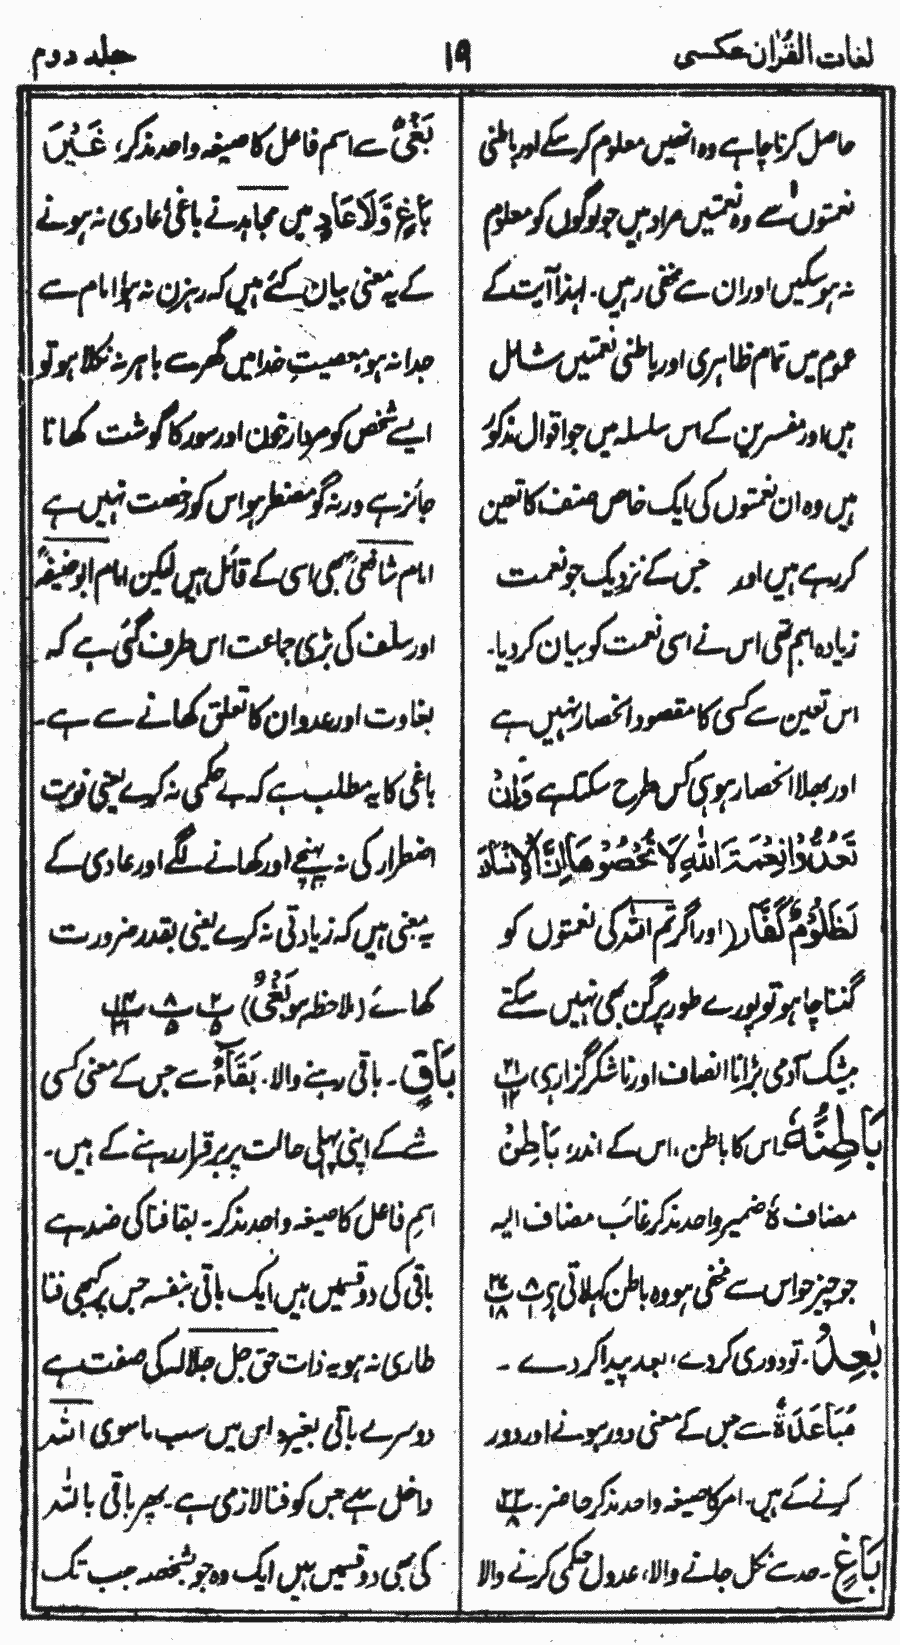 لغات القرآن عکسی
۱۹
جلد دوم
حاصل کرنا چاہے وہ انھیں معلوم کر سکے اور باطنی
نعمتوں سے وہ نعمتیں مراد ہیں جو لوگوں کو معلوم
نہ ہو سکیں اور ان سے مخفی رہیں۔ لہذا آیت کے
عموم میں تمام ظاہری اور باطنی نعمتیں شامل
ہیں اور مفسرین کے اس سلسلہ میں جو اقوال مذکور
ہیں وہ ان نعمتوں کی ایک خاص صنف کا تعین
کر رہے ہیں اور جس کے نزدیک جو نعمت
زیادہ اہم تھی اس نے اسی نعمت کو بیان کر دیا۔
اس تعین سے کسی کا مقصود انحصار نہیں ہے
اور بھلا انحصار ہو ہی کس طرح سکتا ہے وَاِنْ
تَعُدُّوْا نِعْمَۃَ اللّٰہِ لَا تُحْصُوْھَا اِنَّ الْاِنْسَانَ
لَظَلُوْمٌ کَفَّارٌ (اور اگر تم اللہ کی نعمتوں کو
گننا چاہو تو پورے طور پر گن بھی نہیں سکتے
بیشک آدمی بڑا نا انصاف اور ناشکرگزار ہی) پ۲۱ ۱۲
بَاطِنُہٗ۔ اس کا باطن، اس کے اندر، بَاطِنُ
مضاف ہٗ ضمیر واحد مذکر غائب مضاف الیہ
جو چیز حواس سے مخفی ہو وہ باطن کہلاتی ہی پ۸ ۱ پ۲۷ ۱۸
بٰعِدْ۔ تو دوری کر دے، بعد پیدا کر دے۔
مُبَاعَدَۃٌ سے جس کے معنی دور ہونے اور دور
کرنے کے ہیں۔ امر کا صیغہ واحد مذکر حاضر۔ پ۲۲ ۸
بَاغٍ۔ حد سے نکل جانے والا، عدول حکمی کرنے والا
بَغْیٌ سے اسم فاعل کا صیغہ واحد مذکر، غَیْرَ
بَاغٍ وَّلَا عَادٍ میں مجاہد نے باغی، عادی نہ ہونے
کے یہ معنی بیان کئے ہیں کہ رہزن نہ ہو، امام سے
جدا نہ ہو، معصیتِ خدا میں گھر سے باہر نہ نکلا ہو تو
ایسے شخص کو مردار خون اور سور کا گوشت کھانا
جائز ہے ورنہ گو مضطر ہو اس کو رخصت نہیں ہے
امام شافعیؒ بھی اسی کے قائل ہیں لیکن امام ابو حنیفہؒ
اور سلف کی بڑی جماعت اس طرف گئی ہے کہ
بغاوت اور عدوان کا تعلق کھانے سے ہے۔
باغی کا یہ مطلب ہے کہ بے حکمی نہ کرے یعنی نوبت
اضطرار کی نہ پہنچے اور کھانے لگے اور عادی کے
یہ معنی ہیں کہ زیادتی نہ کرے یعنی بقدر ضرورت
کھائے (ملاحظہ ہو بَغْیٌ) پ۲ ۵ پ۸ ۵ پ۱۴ ۲۱
بَاقٍ۔ باقی رہنے والا۔ بَقَاءٌ سے جس کے معنی کسی
شے کے اپنی پہلی حالت پر برقرار رہنے کے ہیں۔
اسم فاعل کا صیغہ واحد مذکر۔ بقا فنا کی ضد ہے
باقی کی دو قسمیں ہیں ایک باقی بنفسہ جس پر کبھی فنا
طاری نہ ہو یہ ذات حق جل جلالہ کی صفت ہے
دوسرے باقی بغیرہ اس میں سب ماسوی اللہ
داخل ہے جس کو فنا لازمی ہے۔ پھر باقی باللہ
کی بھی دو قسمیں ہیں ایک وہ جو بشخصہ جب تک